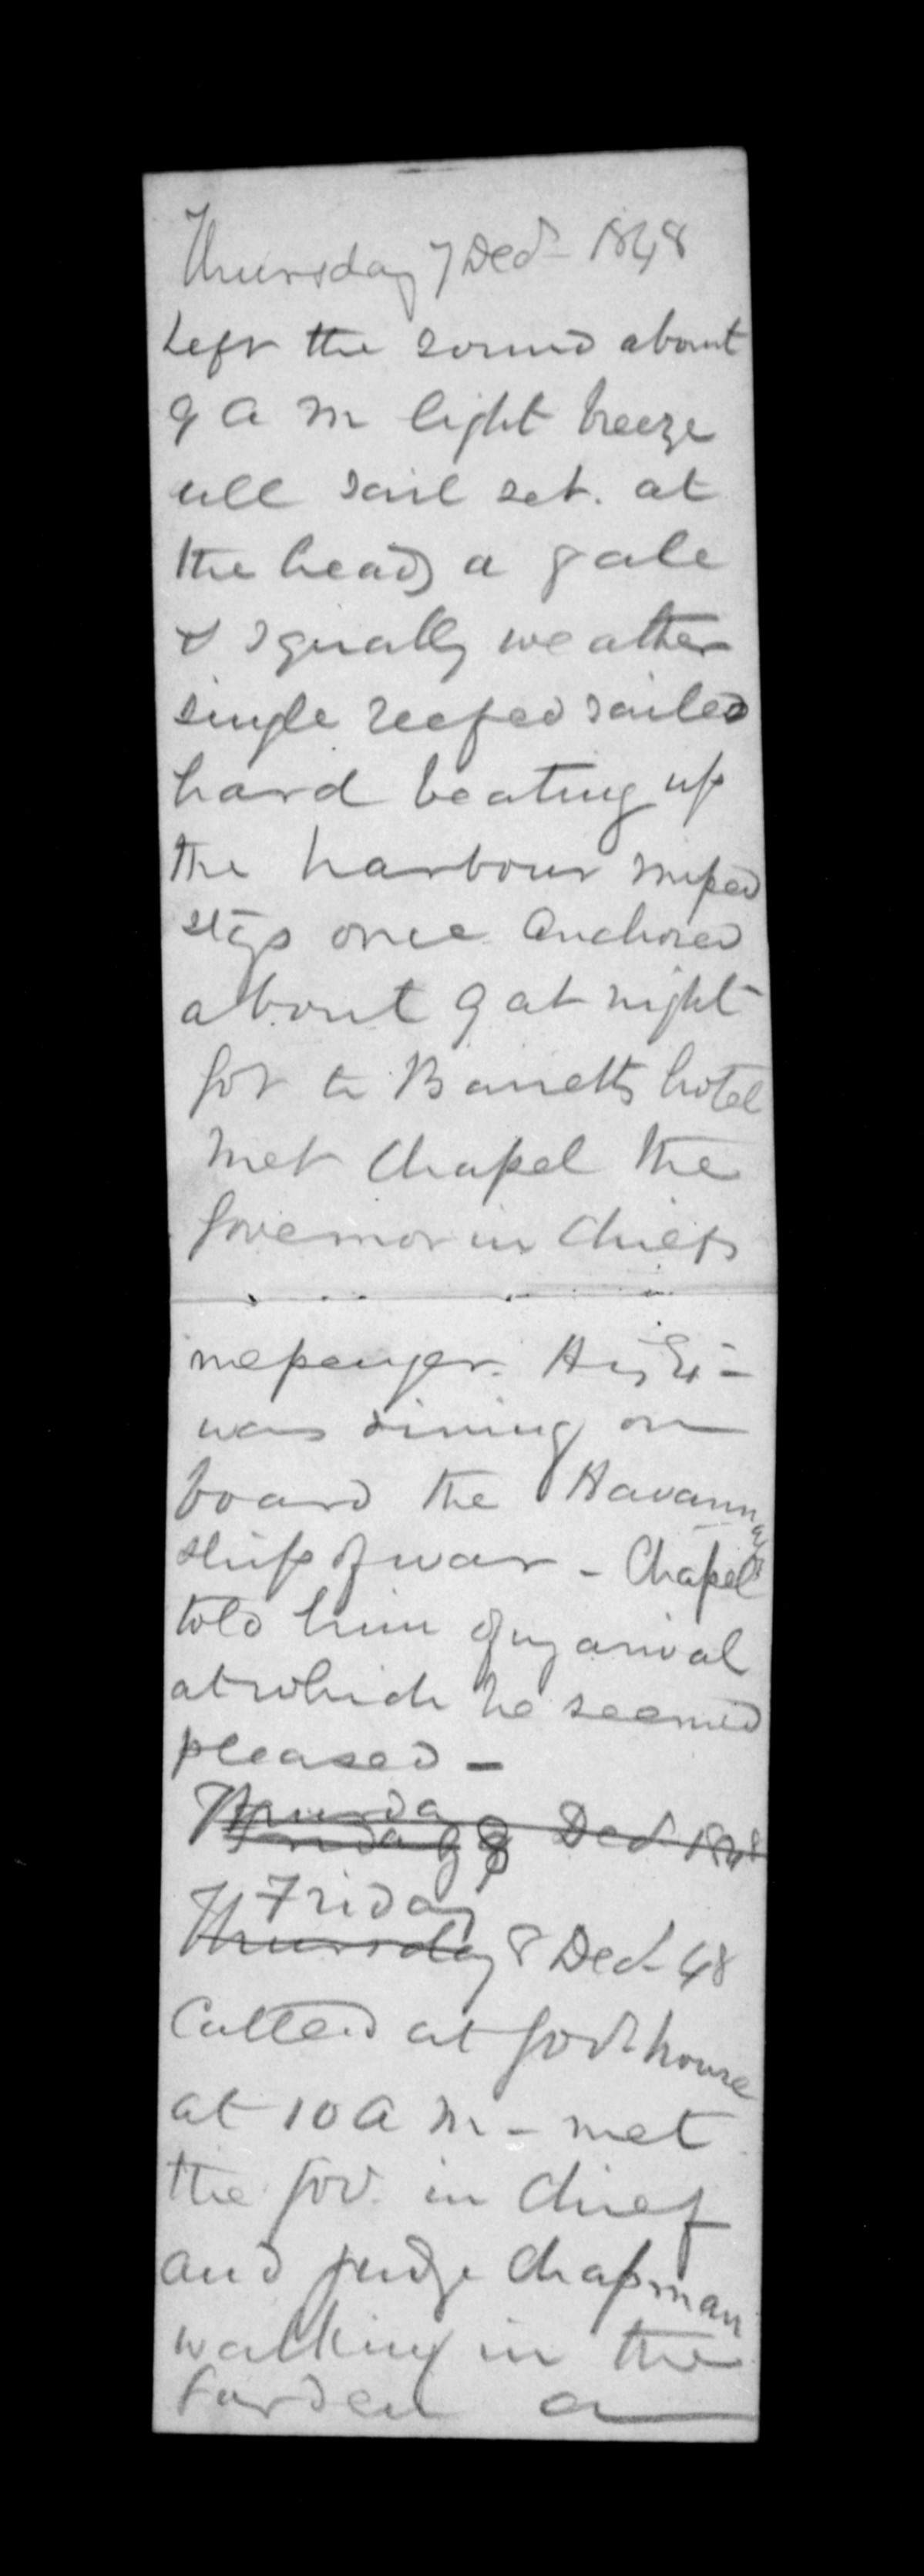 Thursday 7 Decr 1848
Left the sound about
9 a m light breeze
all sail set. at
the heads a gale
& squally weather
single reefed sailed
hard beating up
the harbour missed
stays once anchored
about 9 at night
got to Barretts hotel
met Chapel the
Governor in Chiefs
messenger. His Ex-
was dining on
board the Havannah
ship of war - Chapel
told him of my arival
at which he seemed
pleased -
Thursday
Friday 8 Decr 1848
Friday
Thursday 8 Decr 48
Called at Govt house
at 10 a m - met
the Gov. in Chief
and judge Chapman
walking in the
Garden a